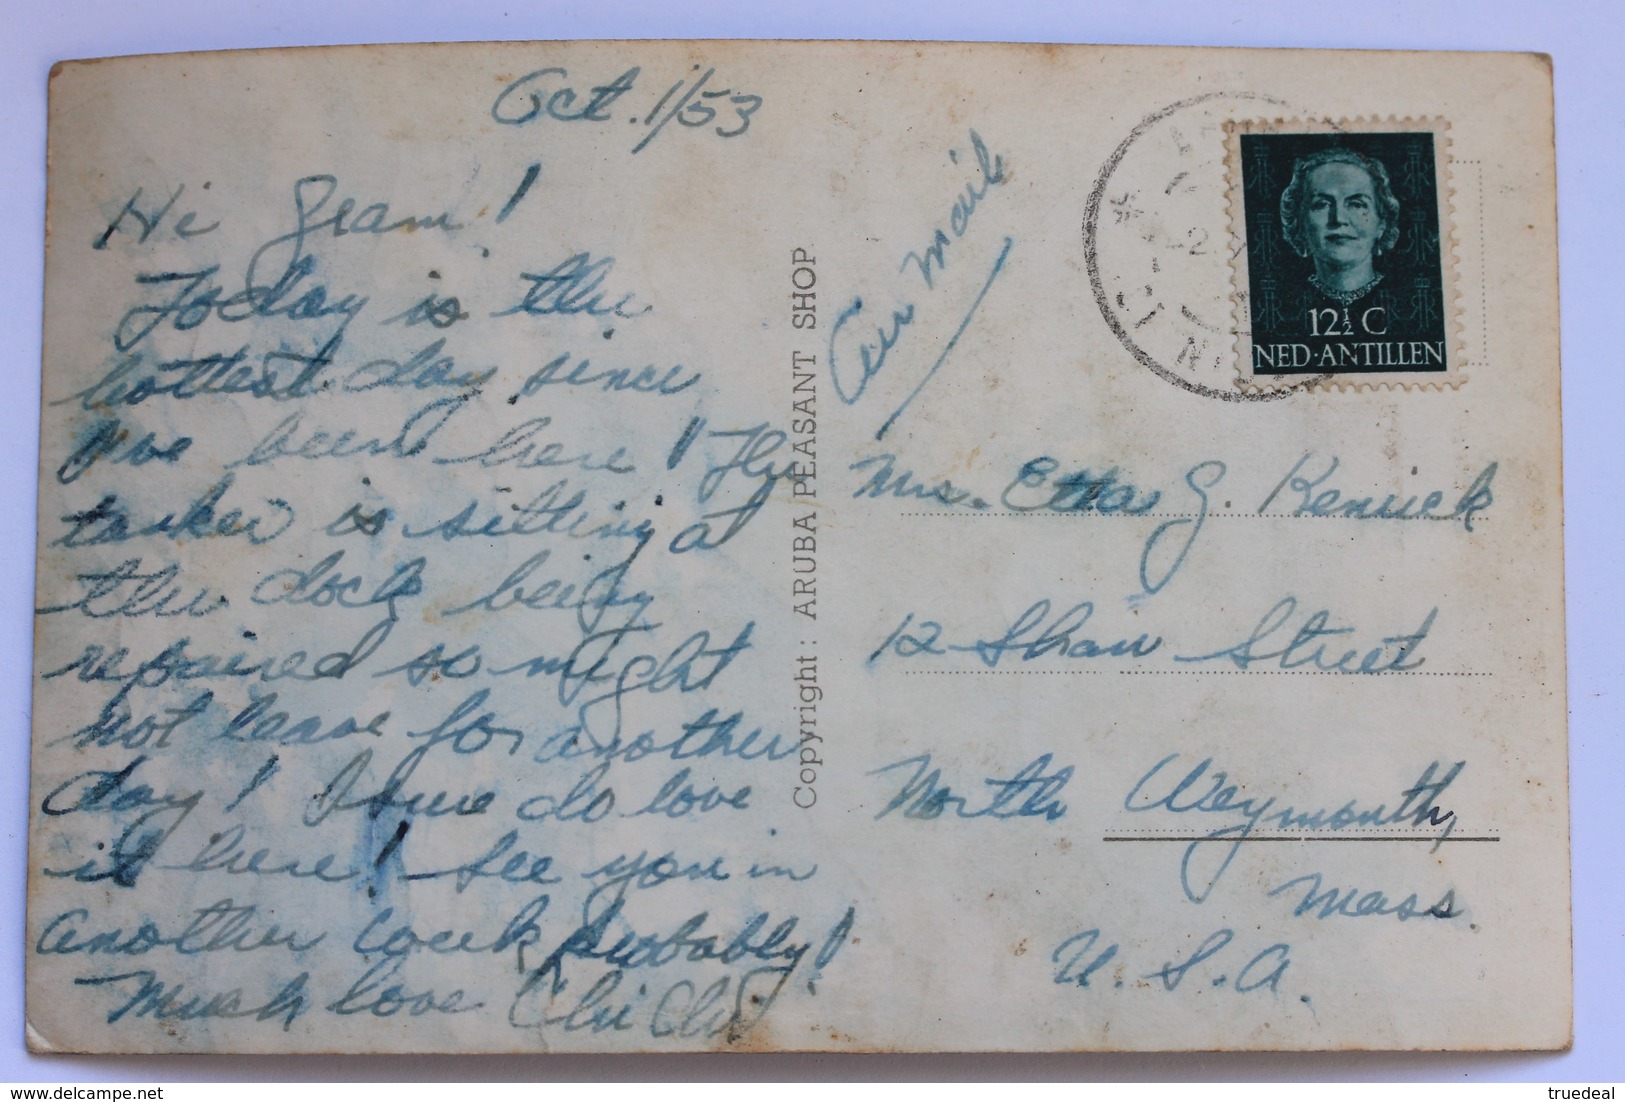 Oct. 1/53
Hi Gram!
Today is the
hottest day since
I've been here! The
tanker is sitting at
the dock being
repaired so might
not leave for another
day! I sure do love
it here! See you in
another week probably!
Much love
Copyright: ARUBA PEASANT SHOP
Air Mail
12½ C
NED·ANTILLEN
Mrs. Etta G. Kenrick
12 Shaw Street
North Weymouth,
Mass.
U.S.A.
delcampe.net
truedeal